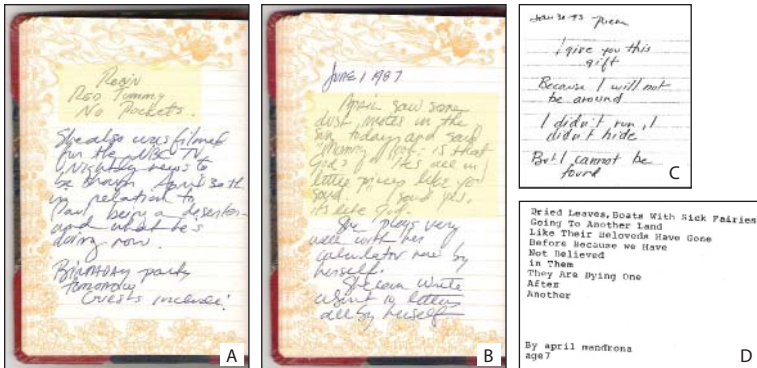 Robin
Red Tummy
No Pockets.
She also was filmed
for the NBC TV
Nightly news to
be shown April 30th
in relation to
Paul being a deserter
and what he's
doing now.
Birthday party
tomorrow
Guests include:
A
JUNE 1 1987
April saw some
dust motes in the
sun today and said
"Mommy look - is that
God? He's all in
little pieces like you
said." I said yes,
it's like God.
She plays very
well with her
calculator now by
herself.
She can write
all by herself
B
Jan 30-93 Poem
I give you this
gift
Because I will not
be around
I didn't run, I
didn't hide
But I cannot be
found
C
Dried Leaves, Boats With Sick Fairies
Going To Another Land
Like Their Beloveds Have Gone
Before Because we Have
Not Believed
in Them
They Are Dying One
After
Another
By april mandrona
age7
D